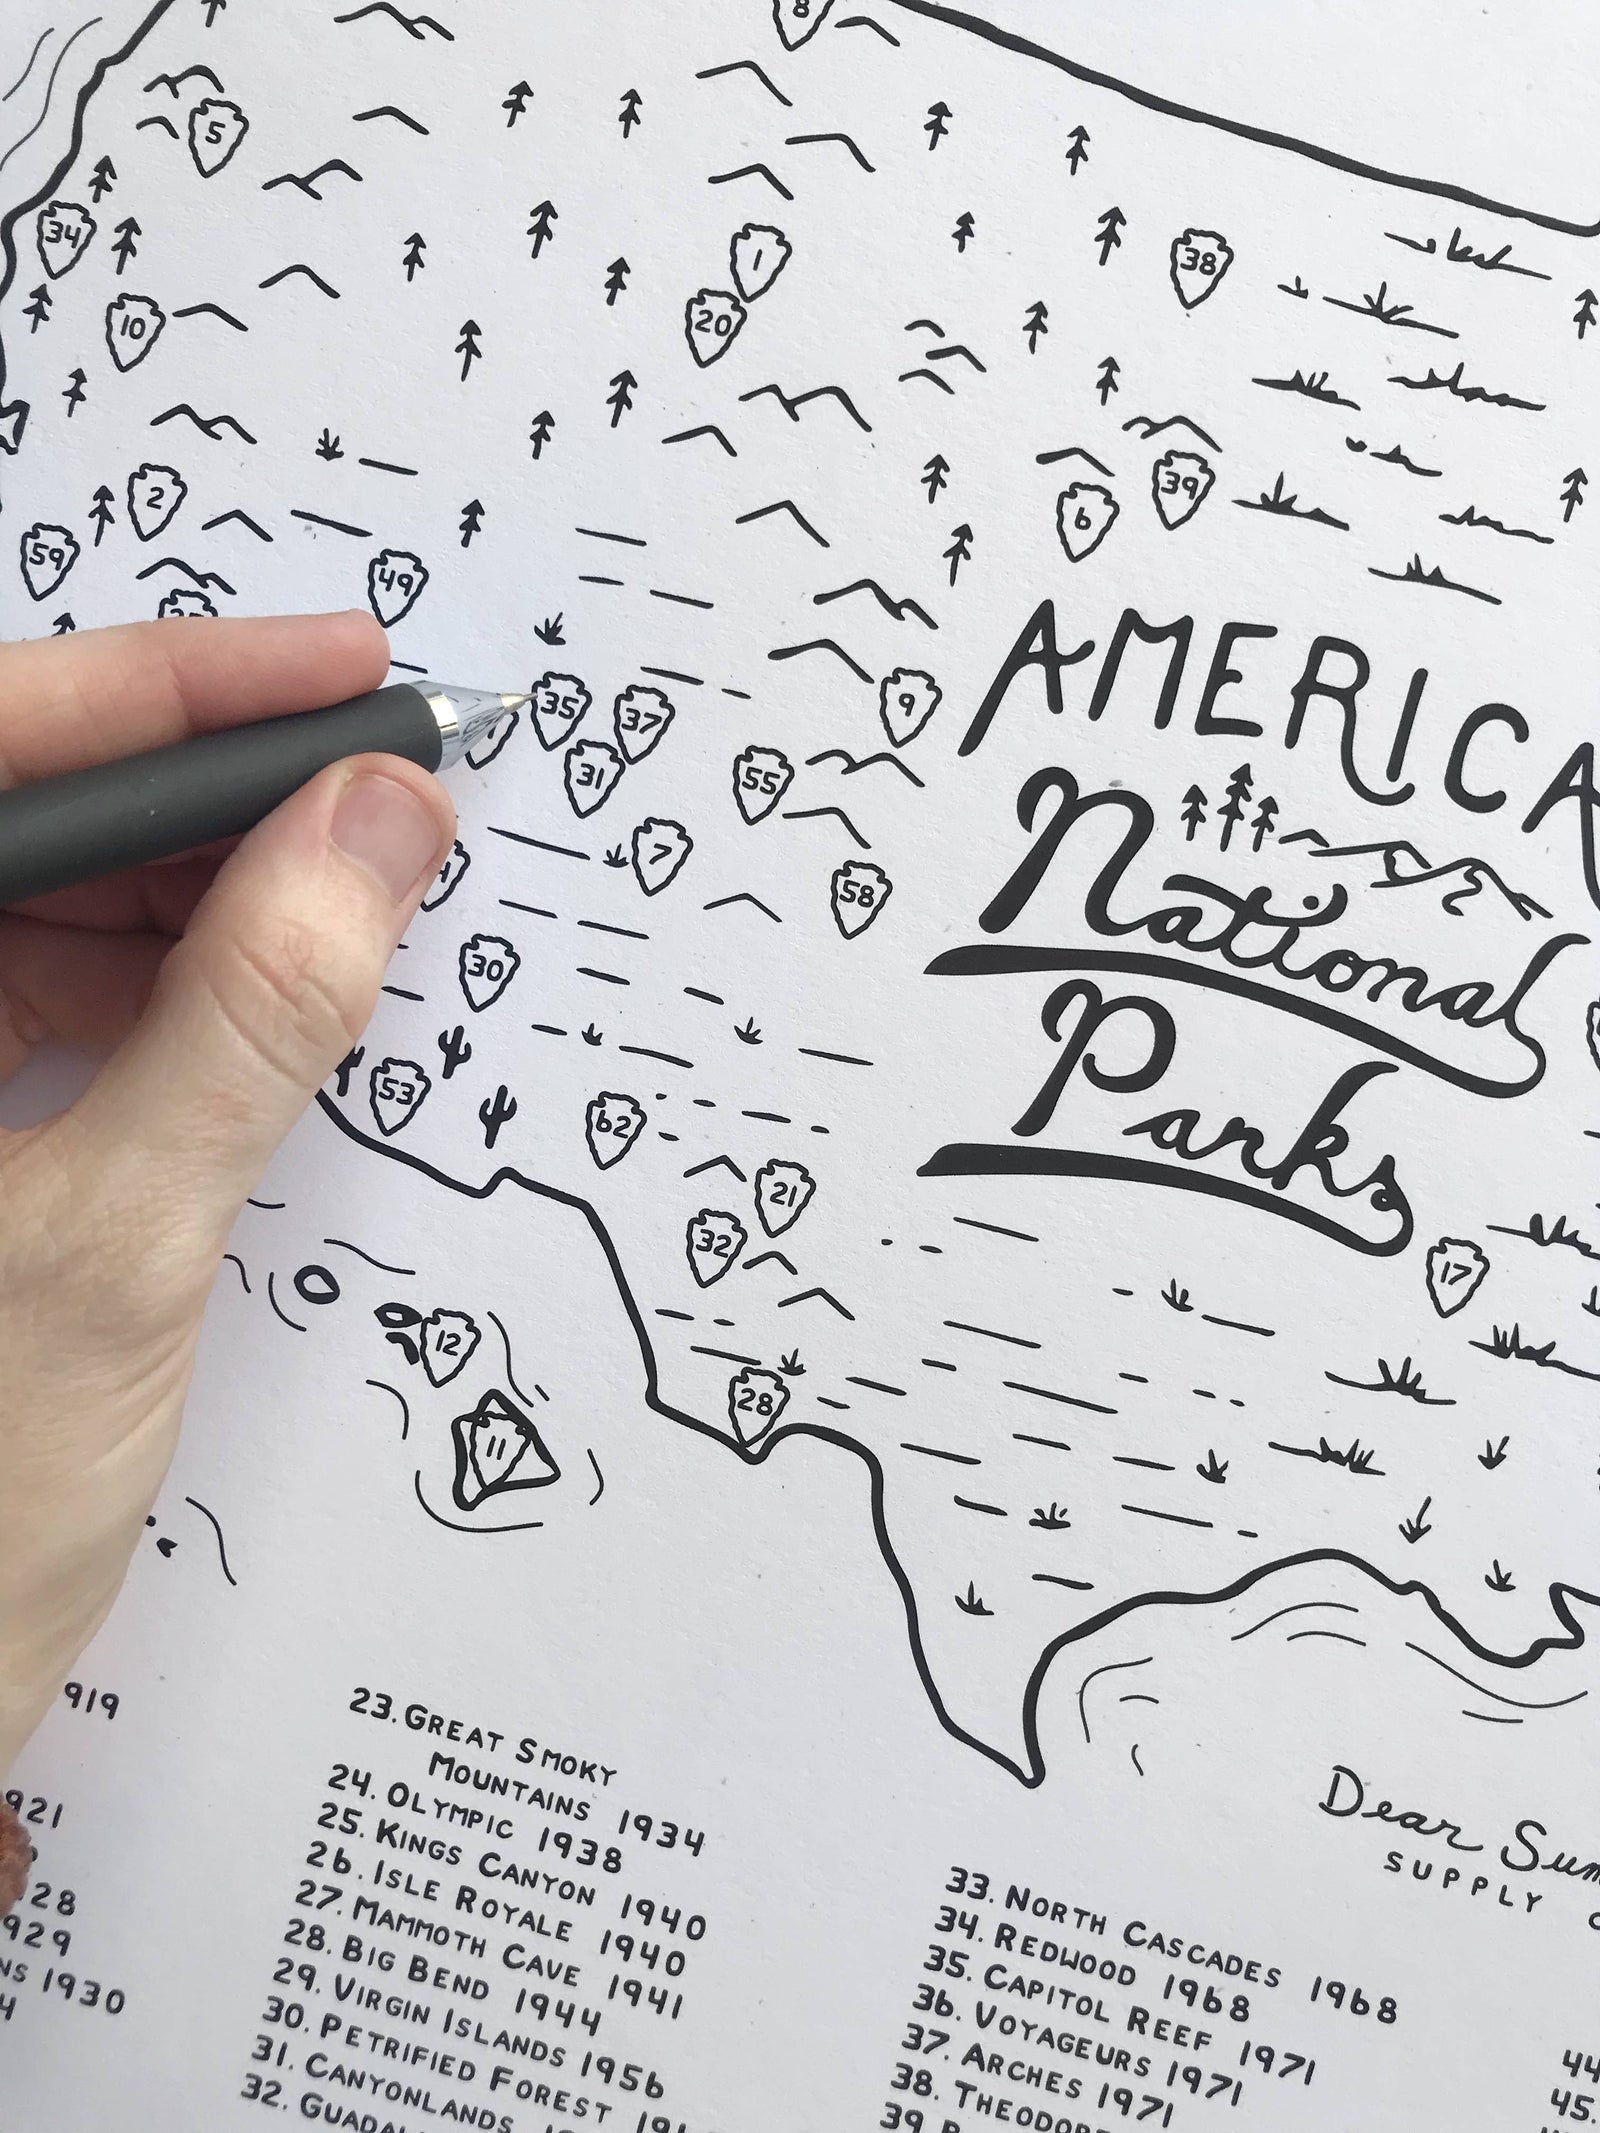 8
5
34
10
1
20
38
2
59
49
6
39
35
37
31
9
55
7
58
30
53
62
21
32
17
12
28
11
AMERICA
National
Parks
919
921
28
929
NS 1930
4
23. GREAT SMOKY
MOUNTAINS 1934
24. OLYMPIC 1938
25. KINGS CANYON 1940
26. ISLE ROYALE 1940
27. MAMMOTH CAVE 1941
28. BIG BEND 1944
29. VIRGIN ISLANDS 1956
30. PETRIFIED FOREST
31. CANYONLANDS
32.
Dear
SUPPLY
33. NORTH CASCADES 1968
34. REDWOOD 1968
35. CAPITOL REEF 1971
36. VOYAGEURS 1971
37. ARCHES 1971
38. THEODORE
39.
44
45.